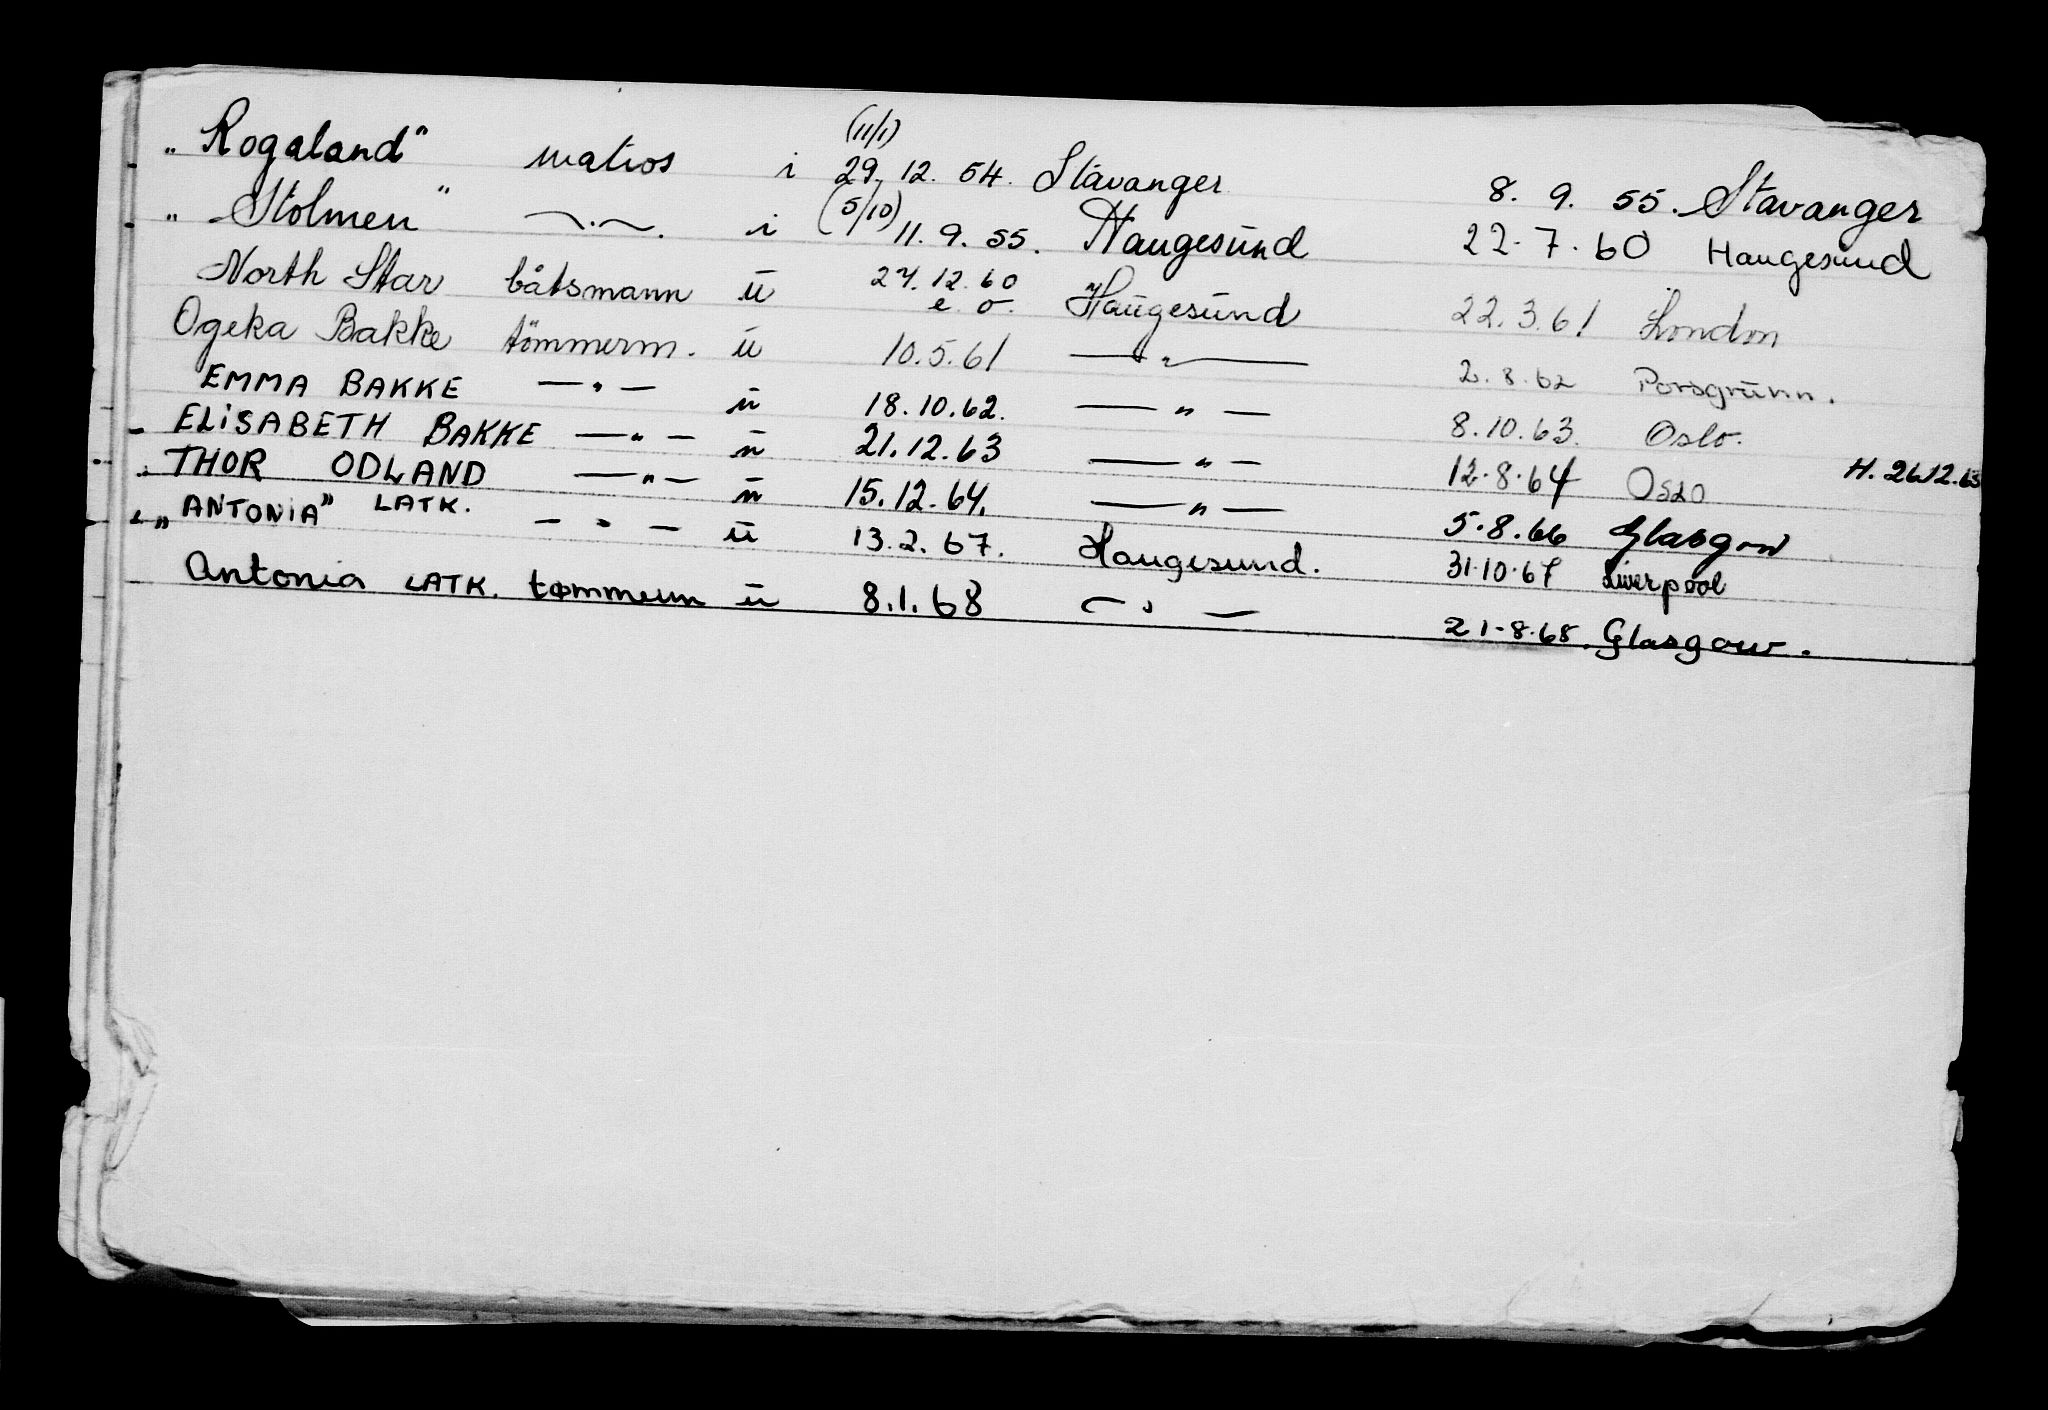 (11/1)
„Rogaland" matros i 29. 12. 54. Stavanger 8. 9. 55. Stavanger
(5/10)
„Stolmen" —.—. i 11. 9. 55. Haugesund 22.7.60 Haugesund
North Star båtsmann u 27.12.60 e. o. Haugesund 22.3.61 London
Ogeka Bakke tömmerm. u 10.5.61 —„— 2.8.62 Porsgrunn.
EMMA BAKKE —„— u 18.10.62. —„— 8.10.63. Oslo.
ELISABETH BAKKE —„— u 21.12.63 —„— 12.8.64 Oslo H. 26.12.63
THOR ODLAND —„— u 15.12.64. —„— 5.8.66 Glasgow
„ANTONIA" LATK. —„— u 13.2.67. Haugesund. 31.10.67 Liverpool
Antonia LATK. tømmerm u 8.1.68 —„— 21-8.68. Glasgow.